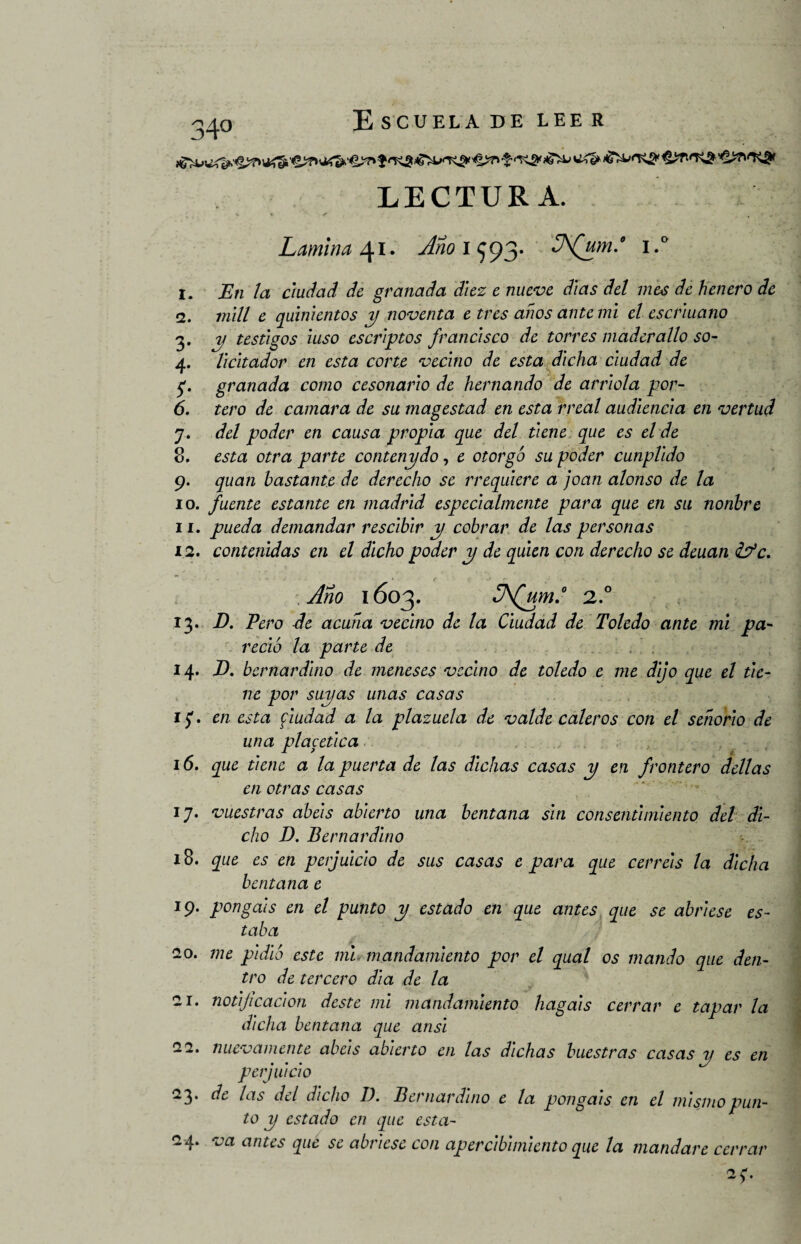 340
ESCUELA DE LEER
LECTURA.
Lamina 41. Año 1593. Num.º 1.º
1. En la ciudad de granada diez e nueve dias del mes de henero de
2. mill e quinientos y noventa e tres años ante mi el escriuano
3. y testigos iuso escriptos francisco de torres maderallo so-
4. licitador en esta corte vecino de esta dicha ciudad de
5. granada como cesonario de hernando de arriola por-
6. tero de camara de su magestad en esta rreal audiencia en vertud
7. del poder en causa propia que del tiene que es el de
8. esta otra parte contenydo, e otorgó su poder cunplido
9. quan bastante de derecho se rrequiere a joan alonso de la
10. fuente estante en madrid especialmente para que en su nonbre
11. pueda demandar rescibir y cobrar de las personas
12. contenidas en el dicho poder y de quien con derecho se deuan &c.
Año 1603. Num.º 2.º
13. D. Pero de acuña vecino de la Ciudad de Toledo ante mi pa-
reció la parte de
14. D. bernardino de meneses vecino de toledo e me dijo que el tie-
ne por suyas unas casas
15. en esta çiudad a la plazuela de valde caleros con el señorio de
una plaçetica
16. que tiene a la puerta de las dichas casas y en frontero dellas
en otras casas
17. vuestras abeis abierto una bentana sin consentimiento del di-
cho D. Bernardino
18. que es en perjuicio de sus casas e para que cerreis la dicha
bentana e
19. pongais en el punto y estado en que antes que se abriese es-
taba
20. me pidió este mi mandamiento por el qual os mando que den-
tro de tercero dia de la
21. notificacion deste mi mandamiento hagais cerrar e tapar la
dicha bentana que ansi
22. nuevamente abeis abierto en las dichas buestras casas y es en
perjuicio
23. de las del dicho D. Bernardino e la pongais en el mismo pun-
to y estado en que esta-
24. va antes que se abriese con apercibimiento que la mandare cerrar
25.